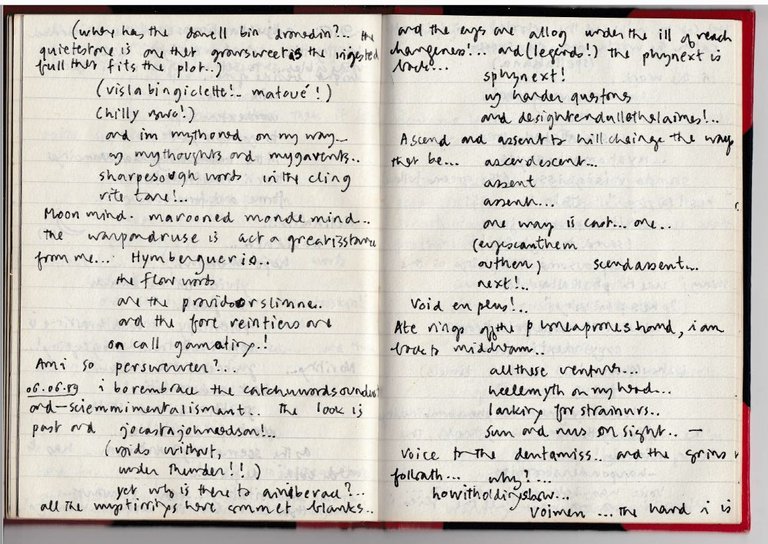 (whey has the donell bin dronedin?... the
quietestone is one thet growsweet as the ingested
full thet fits the plot..)
(vis la bingiclette!.. matoué!)
(chilly !)
and im mythoned on my way...
by mythoughts and mygarents..
sharpesough words in the cling
rite tane!...
Moon mind. marooned monde mind...
the warpondruse is act a great
from me... Hymberguerio...
the flow words
are the providorslimne..
and the fort reintiers are
on call gamatiry.!
Am i so perswerver?...
06.06.89 i borembrace the catchuwords
ord-sciemmimentalismant... the look is
past ord jocastajohnerdson!...
(voids without,
under thunder!!.)
yet why is there to ?...
all the mystirirys here commet blanks...
and the eyes are allog under the ill of reach
changeness!... and (legend!) the phynext is
back...
sphynext!
by harder questones
and !...
Ascend and assent to hillchainge the ways
thet be... ascendescent...
absent
assenh...
one way is cast... one..
(eyescanthem
outhem) scendassent...
next!..
Void en plus!...
Ate rings off the plumeapromeshond, i am
back to middream..
all those ventures...
heelemyth on my head...
lanking for strainurs..
Sun and nus on sight.. —
Voice to the dentamiss.. and the grins
folloath... why?...
howitholdingshow...
Voimen ... the hard i is